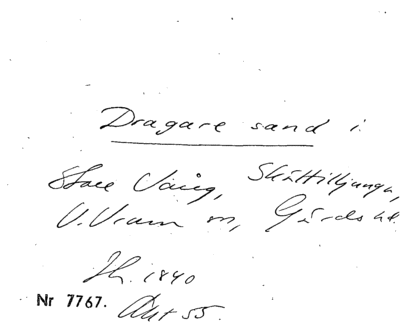 Dragare sand i
Store Vång, Skättiljunga,
V. Vram m, Gärds hd.
Jh. 1840
Nr 7767. Akt 55.